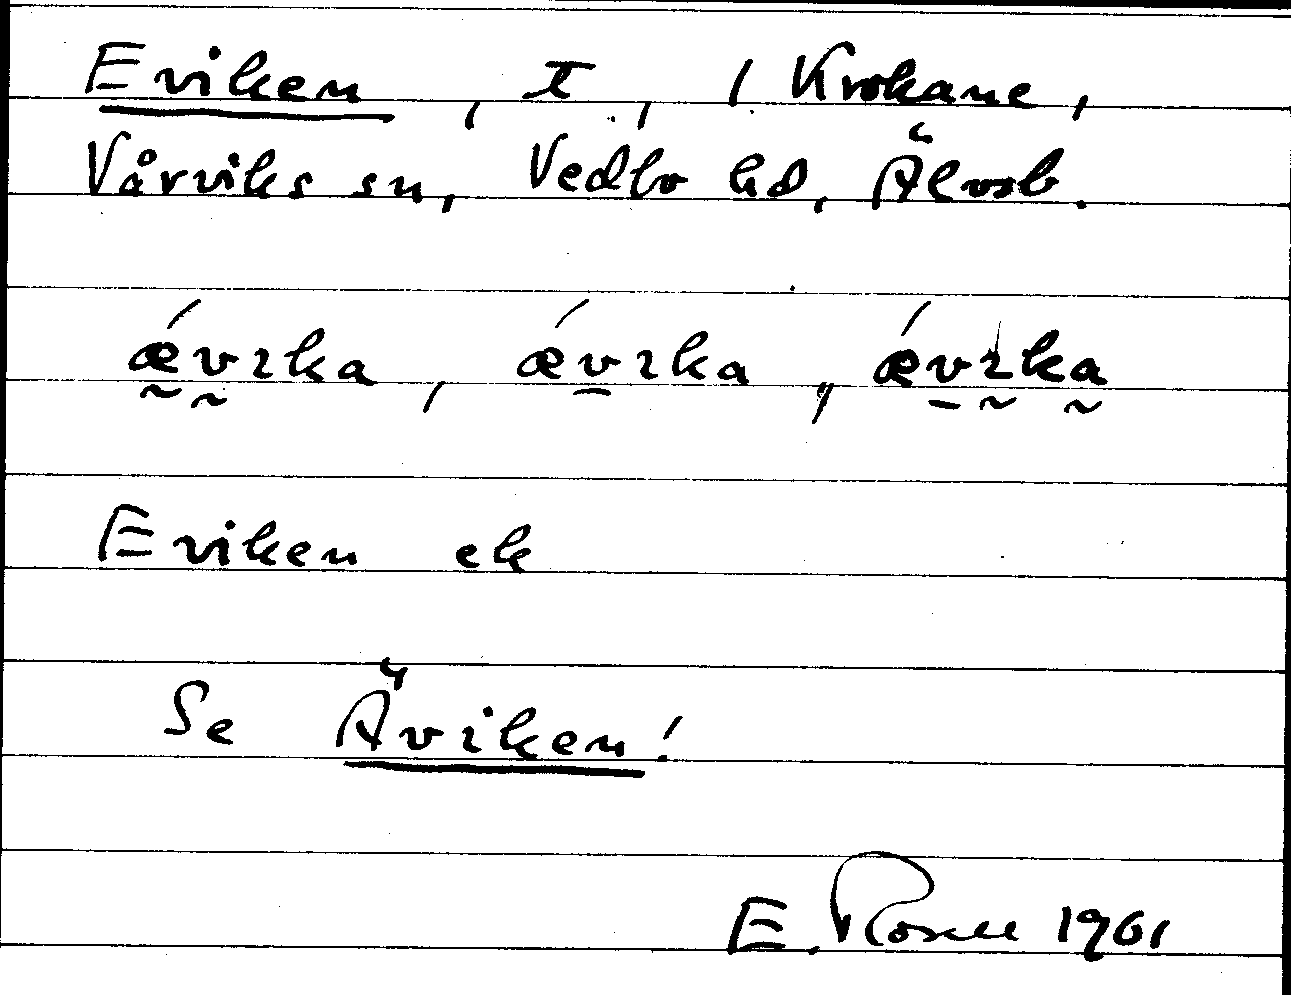 Eviken, t, / Krokane,
Vårviks sn, Vedbo hd, Älvsb.
ǽvıka, ǽvıka, ǽvıka
Eviken ek
Se Äviken!
E. Rosell 1961